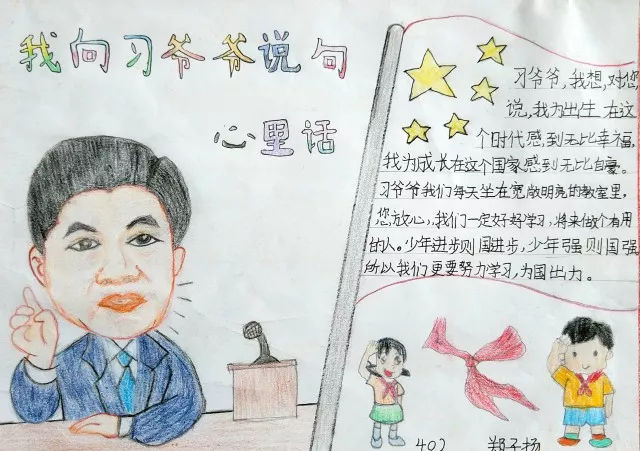 我向习爷爷说句
心里话
习爷爷,我想,对您
说,我为出生在这
个时代感到无比幸福,
我为成长在这个国家感到无比自豪。
习爷爷我们每天坐在宽敞明亮的教室里,
您放心,我们一定好好学习,将来做个有用
的人。少年进步则国进步,少年强则国强
所以我们更要努力学习,为国出力。
402 郑子扬